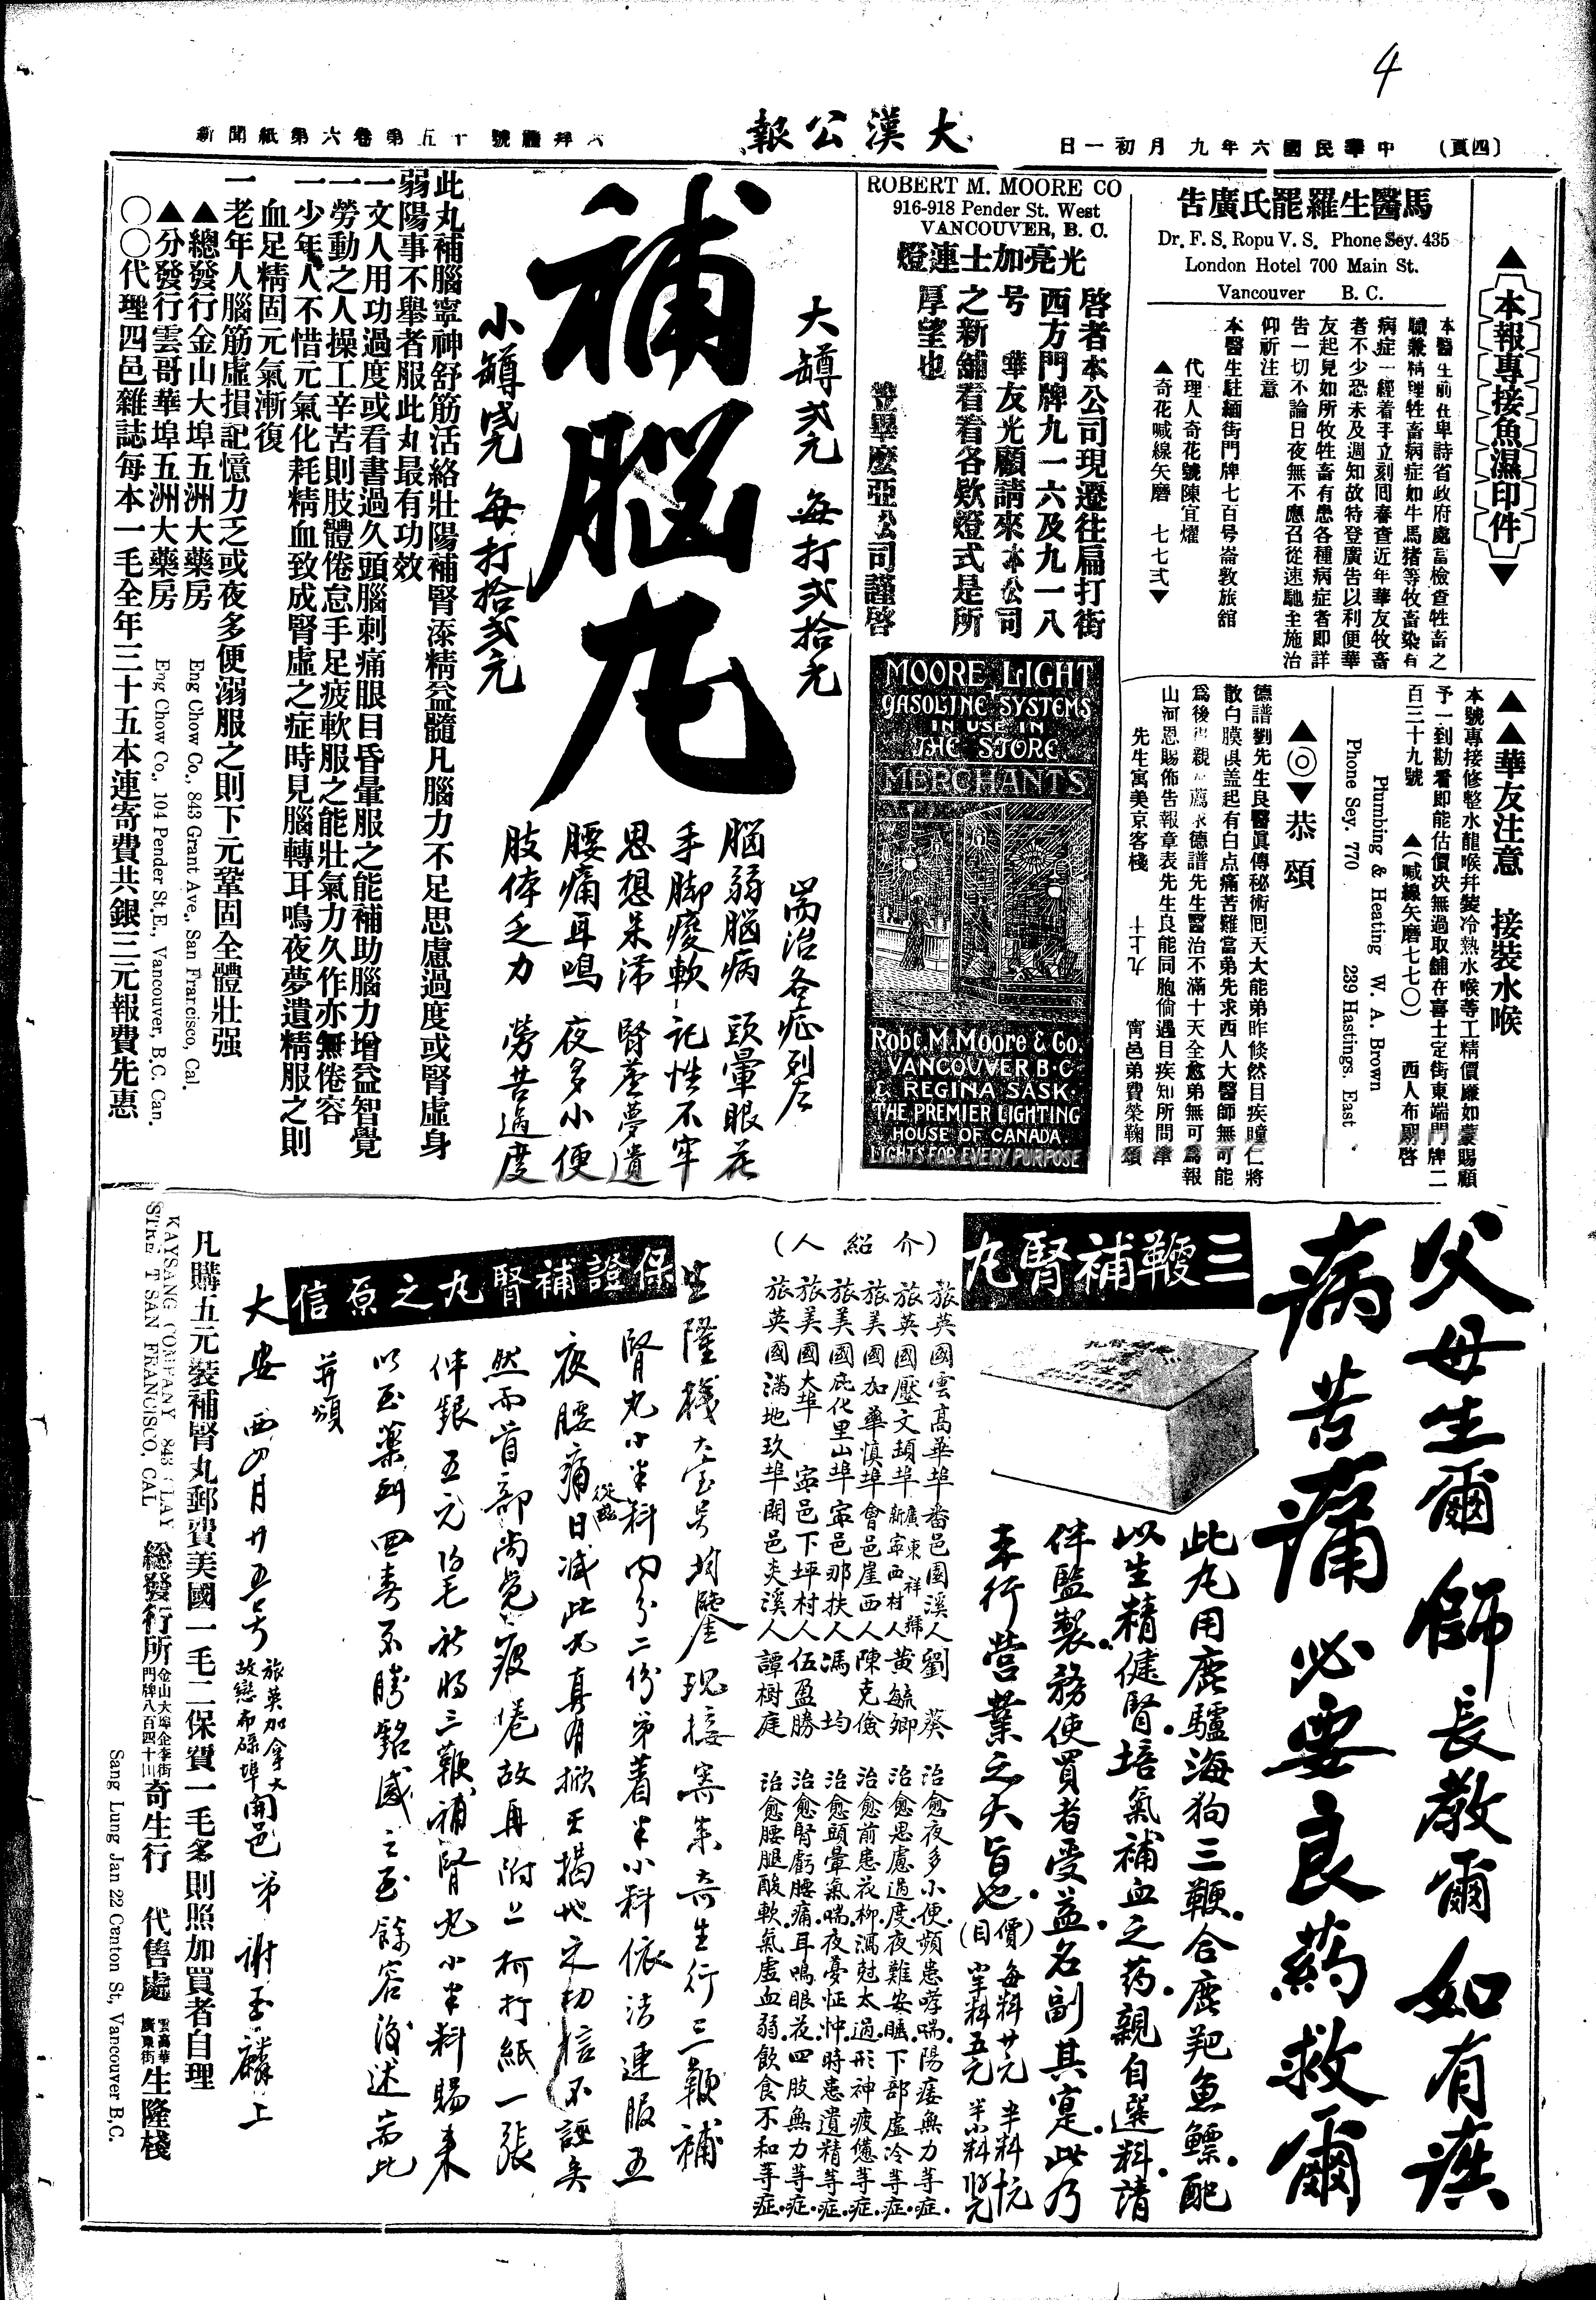 4
(四頁)
中華民國六年九月初一日
大漢公報
新聞紙第六卷第五十號禮拜六
▲本報專接魚濕印件▼
馬醫生羅罷氏廣告
Dr. F. S. Ropu V. S. Phone Sey. 435
London Hotel 700 Main St.
Vancouver B. C.
本醫生前在卑詩省政府處當檢查牲畜之
職兼精理牲畜病症如牛馬猪等牧畜染有
病症一經着手立刻囘春查近年華友牧畜
者不少恐未及週知故特登廣告以利便華
友起見如所牧牲畜有患各種病症者即詳
告一切不論日夜無不應召從速馳至施治
仰祈注意
本醫生駐緬街門牌七百号崙敦旅舘
代理人奇花號陳宜燿
▲奇花喊線矢磨 七七弍▼
▲▲華友注意 接裝水喉
本號專接修整水龍喉幷裝冷熱水喉等工精價廉如蒙賜顧
予一到勘看即能估價决無過取舖在喜士定街東端門牌二
百三十九號 ▲(喊線矢磨七七〇) 西人布朗啓
Plumbing & Heating W. A. Brown
Phone Sey. 770 239 Hastings. East
▲◎▼恭頌
德譜劉先生良醫眞傳秘術囘天大能弟昨倐然目疾瞳仁將
散白膜俱盖起有白点痛苦難當弟先求西人大醫師無可能
爲後得親友薦求德譜先生醫治不滿十天全愈弟無可爲報
山河恩賜佈告報章表先生良能同胞倘遇目疾知所問津
先生寓美京客棧 十上九 甯邑弟費榮鞠頌
ROBERT M. MOORE CO
916-918 Pender St. West
VANCOUVER, B. C.
光亮加士連燈
啓者本公司現遷往扁打街
西方門牌九一六及九一八
号 華友光顧請來本公司
之新舖看看各欵燈式是所
厚望也
登畢麽亞公司謹啓
MOORE LIGHT
GASOLINE SYSTEMS
IN USE IN
THE STORE
MERCHANTS
Robt. M. Moore & Co.
VANCOUVER B·C
& REGINA SASK
THE PREMIER LIGHTING
HOUSE OF CANADA
LIGHTS FOR EVERY PURPOSE
大罇弍元 每打弍拾元
補腦丸
小罇壹元 每打拾弍元
耑治各症列左
腦弱腦病 頭暈眼花
手脚痠軟 記性不牢
思想呆滯 腎虛夢遺
腰痛耳鳴 夜多小便
肢体乏力 勞苦過度
此丸補腦寧神舒筋活絡壯陽補腎添精益髓凡腦力不足思慮過度或腎虛身
弱陽事不舉者服此丸最有功效
一文人用功過度或看書過久頭腦刺痛眼目昏暈服之能補助腦力增益智覺
一勞動之人操工辛苦則肢體倦怠手足疲軟服之能壯氣力久作亦無倦容
一少年人不惜元氣化耗精血致成腎虛之症時見腦轉耳鳴夜夢遺精服之則
血足精固元氣漸復
一老年人腦筋虛損記憶力乏或夜多便溺服之則下元鞏固全體壯强
▲總發行金山大埠五洲大藥房 Eng Chow Co., 843 Grant Ave., San Francisco, Cal.
▲分發行雲哥華埠五洲大藥房 Eng Chow Co., 104 Pender St. E., Vancouver, B.C. Can.
〇〇代理四邑雜誌每本一毛全年三十五本連寄費共銀三元報費先惠
父母生爾師長教爾如有疾
病苦痛必要良药救爾
三鞭補腎丸
此丸用鹿驢海狗三鞭合鹿羓魚鰾配
以生精健腎培氣補血之药親自選料請
伴監製務使買者受益名副其寔此乃
本行營業之大旨也
(價目) 每料廿元 半料十元
小半料五元
(介紹人)
旅英國雲高華埠番邑園溪人劉葵 治愈夜多小便頻患哮喘陽痿無力等症
旅英國壓文頓埠新寧西村人黃毓卿 治愈思慮過度夜難安睡下部虛冷等症
旅美國加華慎埠會邑崖西人陳克儉 治愈前患花柳瀉尅太過形神疲憊等症
旅美國庇化里山埠寧邑那扶人馮均 治愈頭暈氣喘夜憂怔忡時患遺精等症
旅美國大埠 寧邑下坪村人伍盈勝 治愈腎虧腰痛耳鳴眼花四肢無力等症
旅英國滿地玖埠開邑炎溪人譚樹庭 治愈腰腿酸軟氣虛血弱飲食不和等症
保證補腎丸之原信
生隆棧大宝号均鑒現接寄來奇生行三鞭補
腎丸小半料内分二份弟着半小料依法連服五
夜腰痛從茲日减此丸真有掀天揭地之功信不誣矣
然而首部尚覺疲倦故再附上柯打紙一張
伴銀五元 祈将三鞭補腎丸小半料賜來
以至藥到回春不勝銘感之至餘容後述耑此
并頌
大安 西四月廿五号 旅英加拿大 開邑弟謝至麟上
凡購五元裝補腎丸郵費美國一毛二保費一毛多則照加買者自理
KAYSANG COMPANY 843 CLAY
STREET SAN FRANCISCO, CAL
總發行所 金山大埠企李街門牌八百四十三 奇生行 代售處 雲高華廣東街 生隆棧
Sang Lung Jan 22 Centon St, Vancouver B,C.